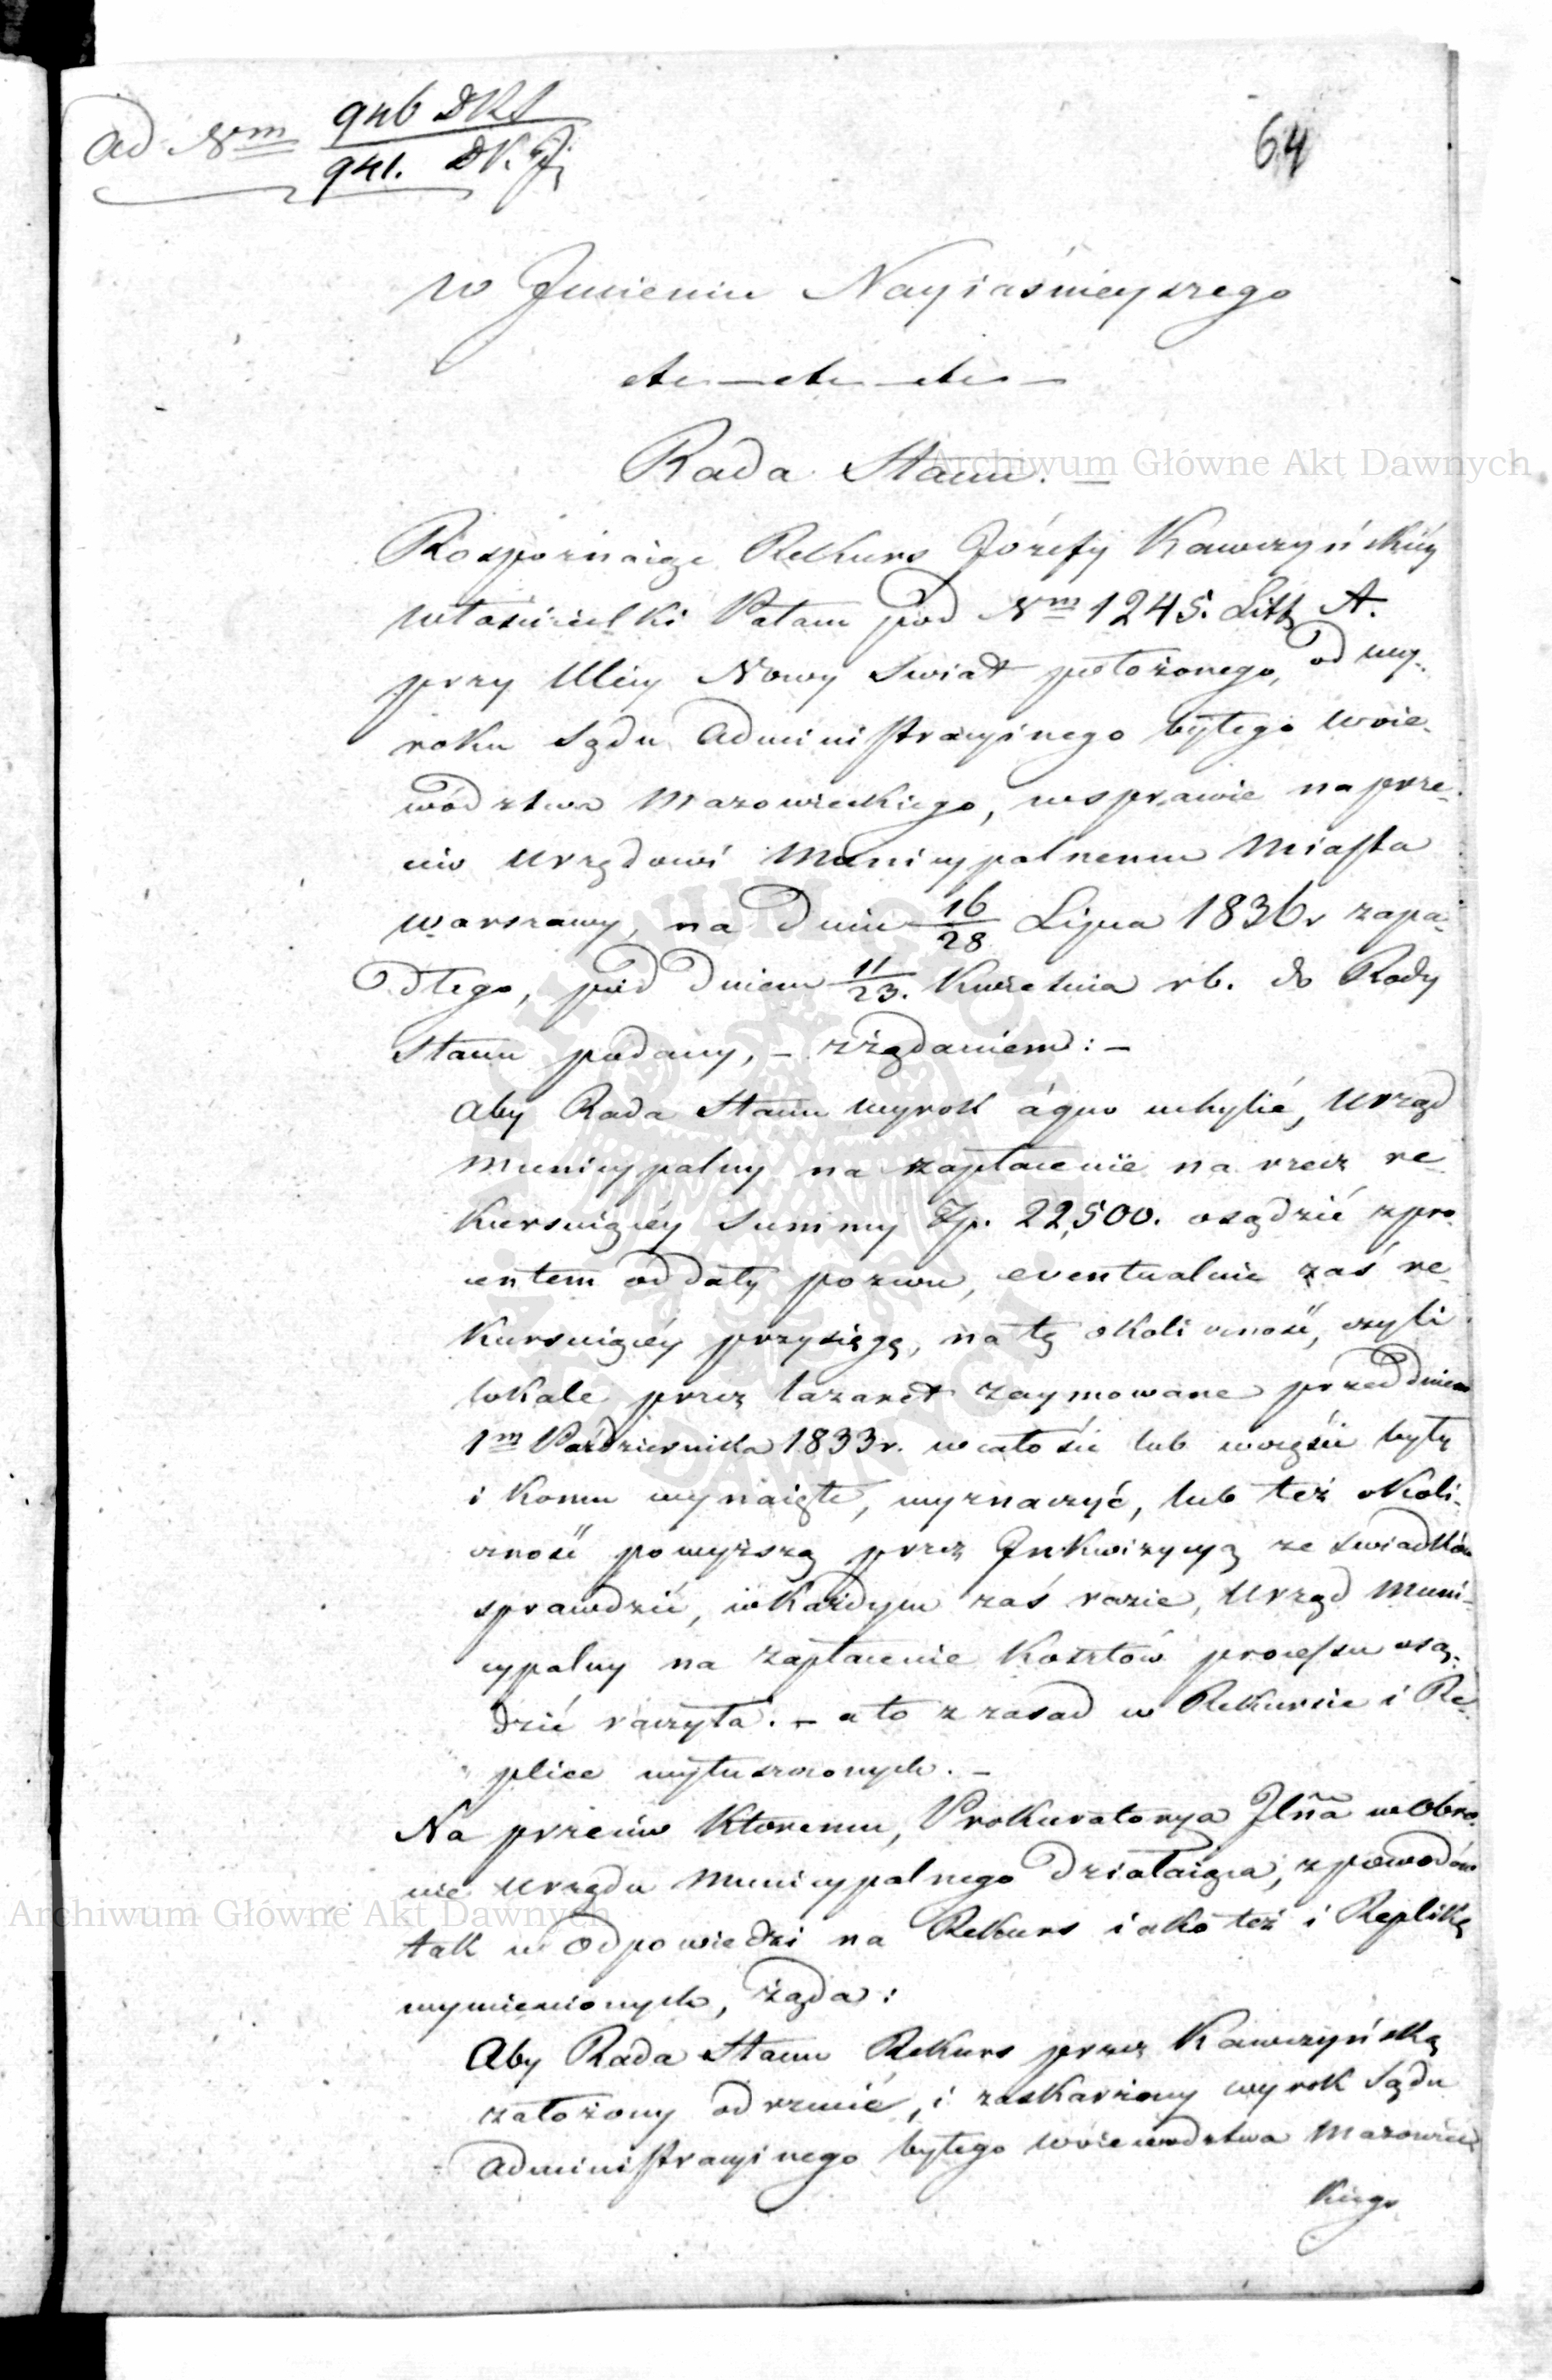 ad Nm 946 DKS
941. DK.
64
w Jmieniu Nayiaśnieyszego
etc — etc — etc —
Rada Stanu. —
Archiwum Główne Akt Dawnych
Rospoznaiąc Rekurs Józefy Kawczyńskiéy
właścicielki Pałacu pod Nm 1245. Litt A.
przy Ulicy Nowy Swiat położonego, od wy-
roku Sądu Administracyinego byłego Woie-
wództwa Mazowieckiego, wsprawie naprze-
ciw Urzędowi Municypalnemu Miasta
Warszawy, na dniu 16/28 Lipca 1836 r zapa-
dłego, pod dniem 11/23. Kwietnia rb. do Rady
Stanu podany, – zżądaniem: –
Aby Rada Stanu wyrok áquo uchylić, Urząd
Municypalny na zapłacenie na rzecz re-
kursuiącéy Summy Zp. 22,500. osądzić zpro-
centem od daty pozwu, eventualnie zaś re-
kursuiącéy przysięgę, na tę okoliczność, czyli
lokale przez lazaret zaymowane przed dniem
1m Października 1833 r. wcałości lub wczęści były
i komu wynaięte, wyznaczyć, lub też okoli-
czność powyższą przez Jnkwizycyą ze swiadków
sprawdzić, wkażdym zaś razie, Urząd Muni-
cypalny na zapłacenie kosztów processu osą-
dzić raczyła. – a to z zasad w Rekursie i Re-
plice wytuszczonych. –
Na przeciw któremu, Prokuratorya Jlña wobro-
nie Urzędu Municypalnego działaiąca, zpowodów
Archiwum Główne Akt Dawnych
tak w odpowiedzi na Rekurs iako też i Replikę
wymienionych, żąda:
Aby Rada Stanu Rekurs przez Kawczyńską
założony odrzucić, i zaskarżony wyrok Sądu
Administracyinego byłego Woiewództwa Mazowiec-
kiego